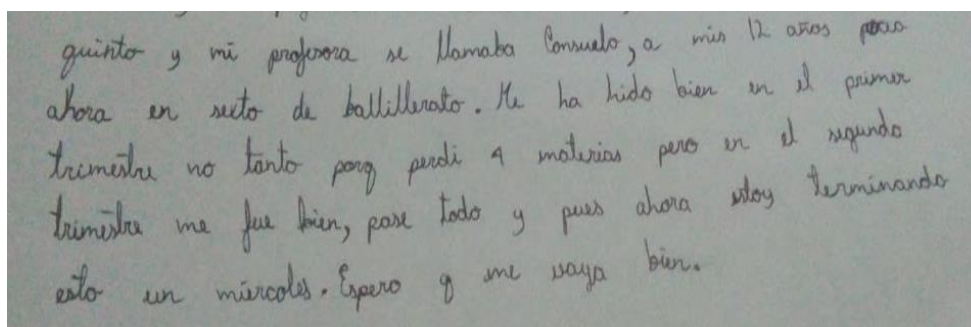 quinto y mi profesora se llamaba Consuelo, a mis 12 años paso
ahora en sexto de ballillerato. Me ha hido bien en el primer
trimestre no tanto porq perdi 4 materias pero en el segundo
trimestre me fue bien, pase todo y pues ahora estoy terminando
esto un miercoles. Espero q me vaya bien.